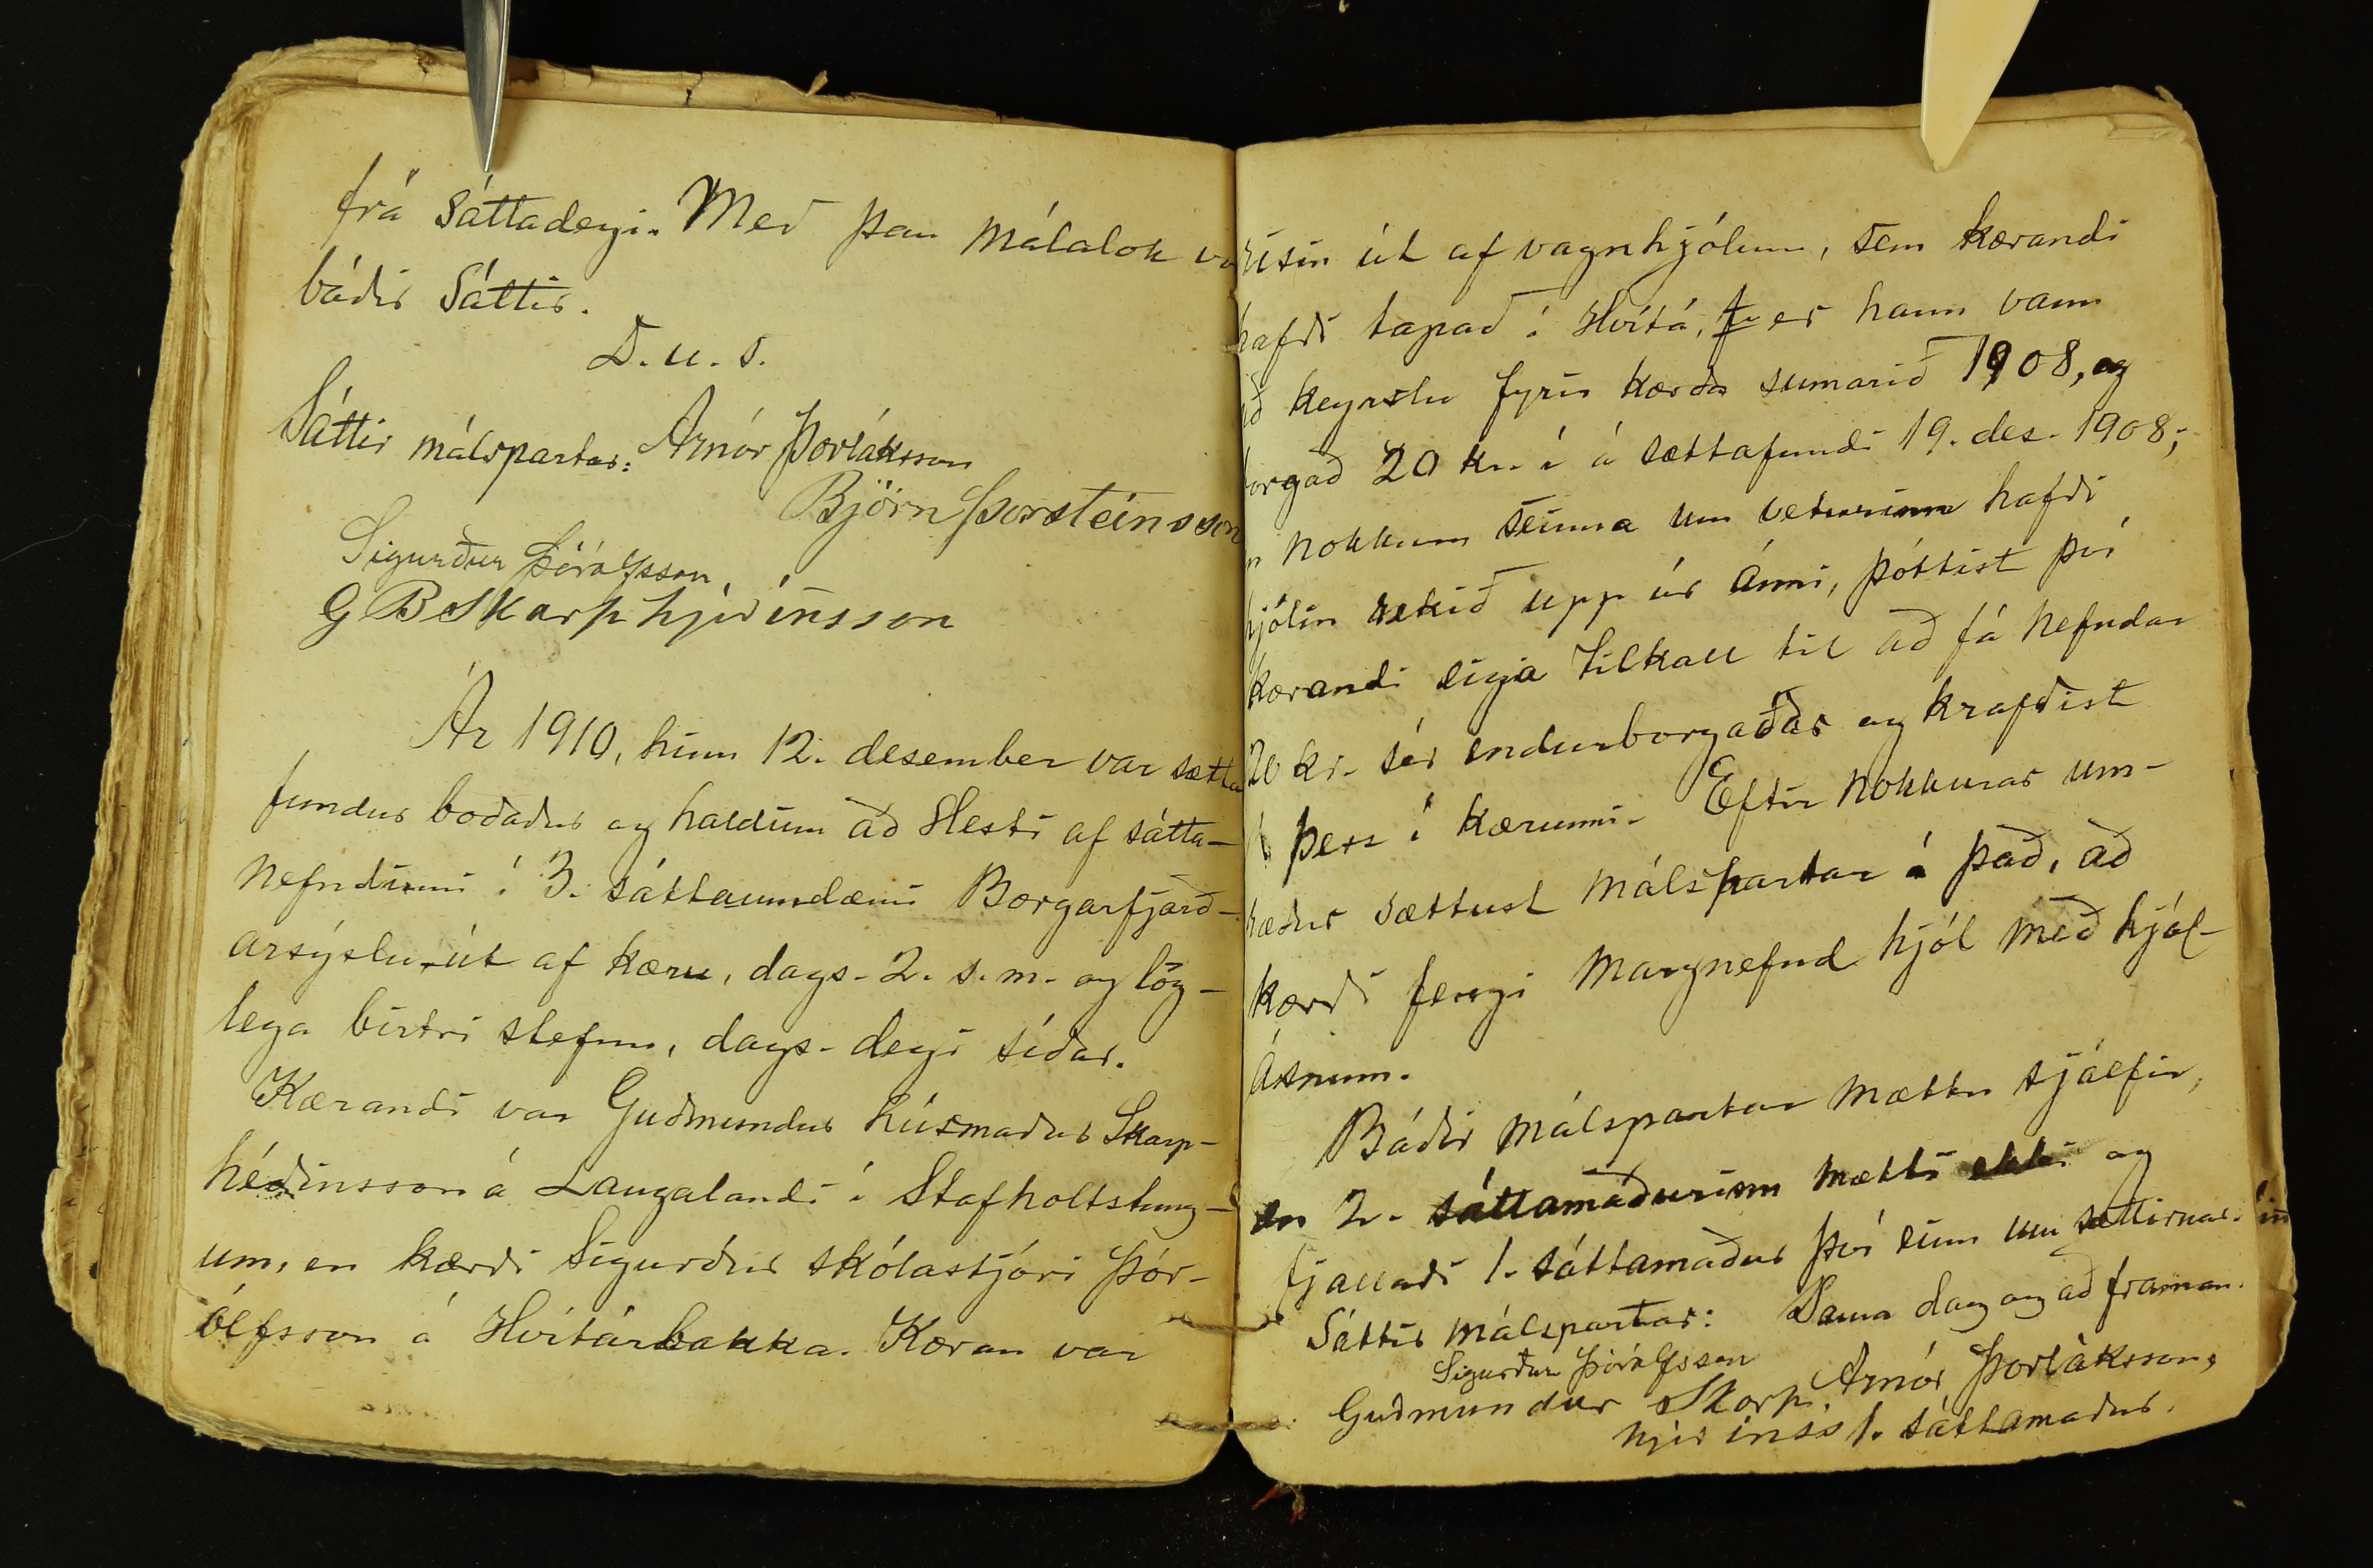 frá sáttadegi. Með þau málalok vo
báðir sáttir.
D. u. s.
Sáttir málspartar: Arnór Þorláksson
Björn Þorsteinsson
Sigurður Þórólfsson.
G B Skarphjeðinsson
Ár 1910, hinn 12. desember var sætta
fundur boðaður og haldinn að Hesti af sátta-
nefndinni í 3. sáttaumdæmi Borgarfjarð-
arsýslu, út af kæru, dags. 2. s. m. og lög-
lega birtri stefnu, dags. degi síðar.
Kærandi var Guðmundur húsmaður Skarp-
héðinsson á Laugalandi í Stafholtstung-
um, en kærði Sigurður skólastjóri Þór-
ólfsson á Hvítárbakka. Kæran var
risin út af vagnhjólum, sem kærandi
hafði tapað í Hvítá, er hann vann
ið keyrslu fyrir kærða sumarið 1908, og
borgað 20 kr. í á sættafundi 19. des. 1908;
n nokkurn seinna um veturinn hafði
hjólin rekið upp úr ánni, þóttist því
kærandi eiga tilkall til að fá nefndar
20 kr. sér endurborgaðar og krafðist
þess í kærunni. Eftir nokkurar um-
ræður sættust málspartar á það, að
kærði fengi margnefnd hjól með hjól-
ásnum.
Báðir málspartar mættu sjálfir,
en 2. sáttamaðurinn mætti ekki og
fjallaði 1. sáttamaður því einn um sættirnar.
Sáttir málspartar: Sama dag og að framan.
Sigurður Þórólfsson
Arnór Þorláksson,
Guðmundur Skarp.
hjeðinss 1. sáttamaður.